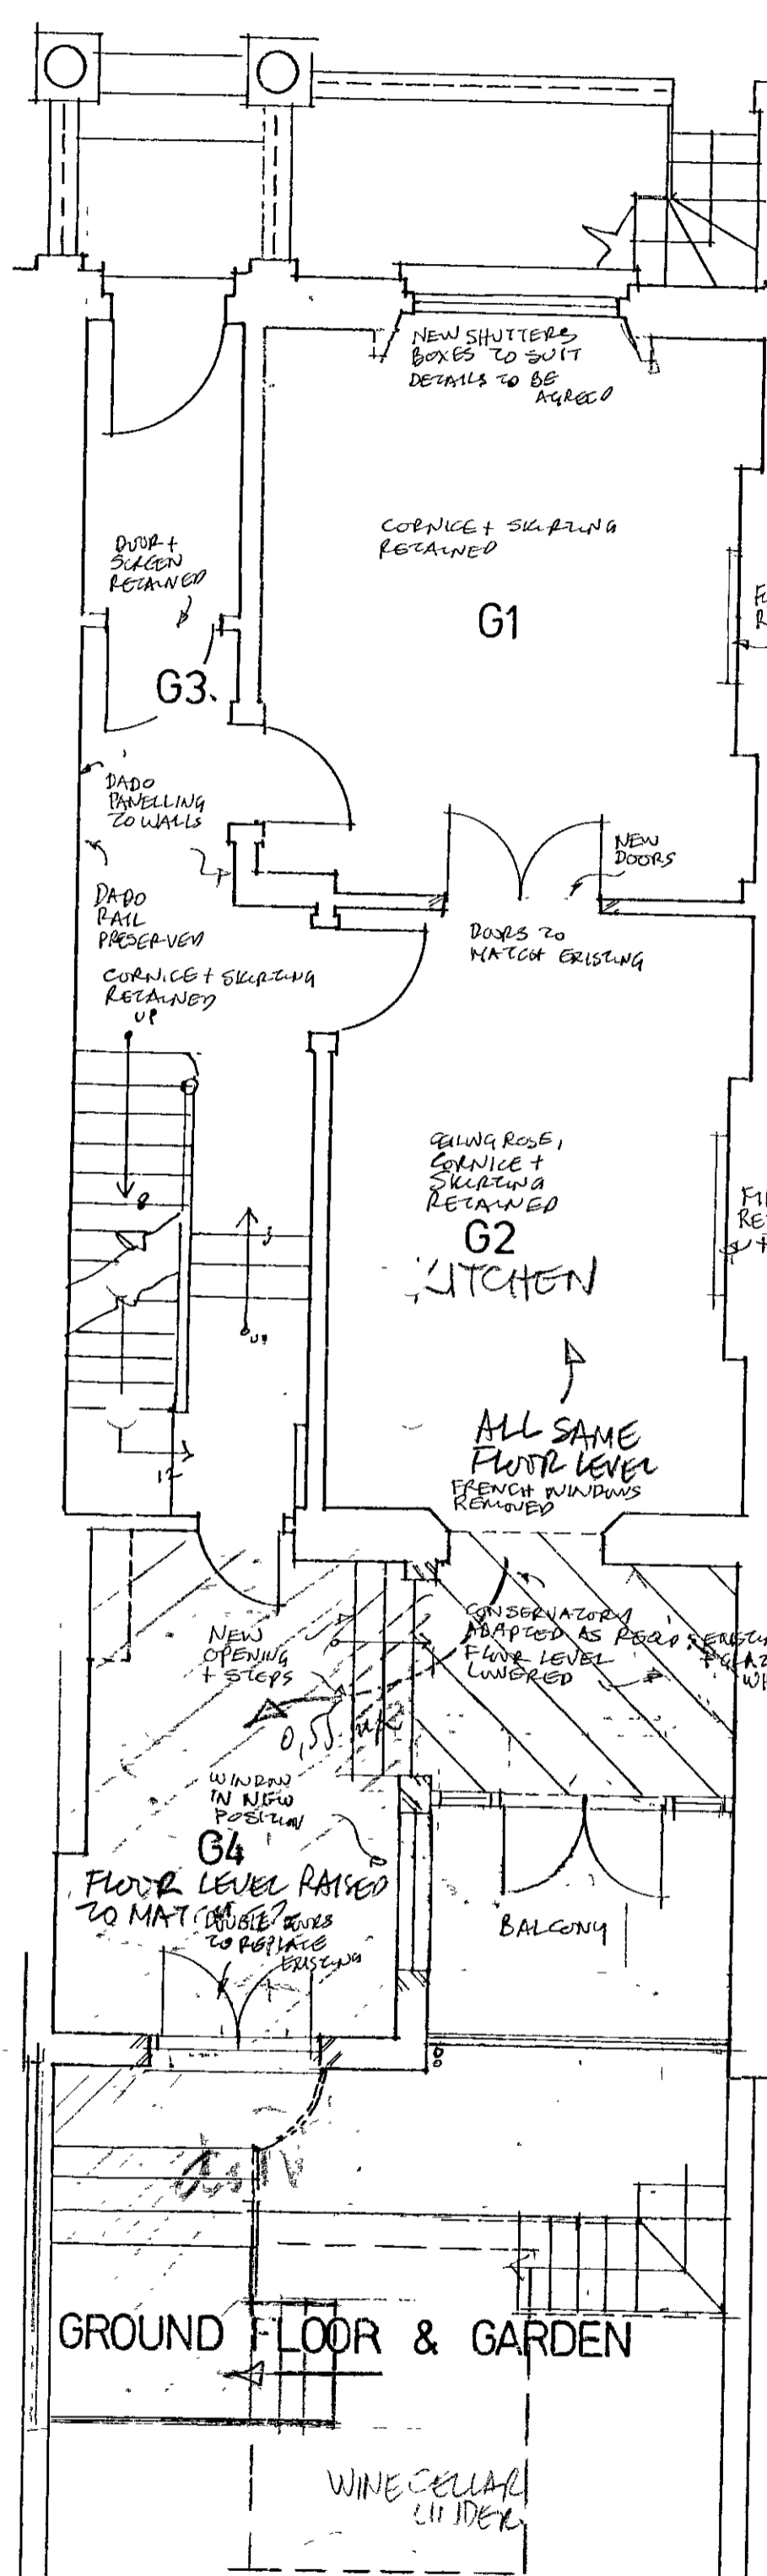 NEW SHUTTERS
BOXES TO SUIT
DETAILS TO BE
AGREED
CORNICE + SKIRTING
RETAINED
G1
DOOR +
SCREEN
RETAINED
G3.
DADO
PANELLING
TO WALLS
NEW
DOORS
DADO
RAIL
PRESERVED
DOORS TO
MATCH EXISTING
CORNICE + SKIRTING
RETAINED
UP
8
3
UP
12
CEILING ROSE,
CORNICE +
SKIRTING
RETAINED
G2
KITCHEN
ALL SAME
FLOOR LEVEL
FRENCH WINDOWS
REMOVED
NEW
OPENING
+ STEPS
CONSERVATORY
ADAPTED AS REQ'D
FLOOR LEVEL
LOWERED
0,55
WINDOW
IN NEW
POSITION
G4
FLOOR LEVEL RAISED
TO MATCH
DOUBLE DOORS
TO REPLACE
EXISTING
BALCONY
GROUND FLOOR & GARDEN
WINE CELLAR
UNDER